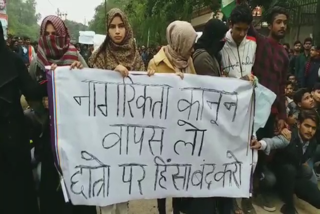 नागरिकता कानून
वापस लो
छात्रो पर हिंसा बंद करो